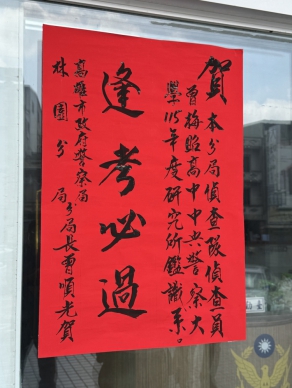 賀本分局偵查隊偵查員
曾梅貽高中中央警察大
學115年度研究所鑑識系。
逢考必過
高雄市政府警察局
林園分局分局長曾順光賀